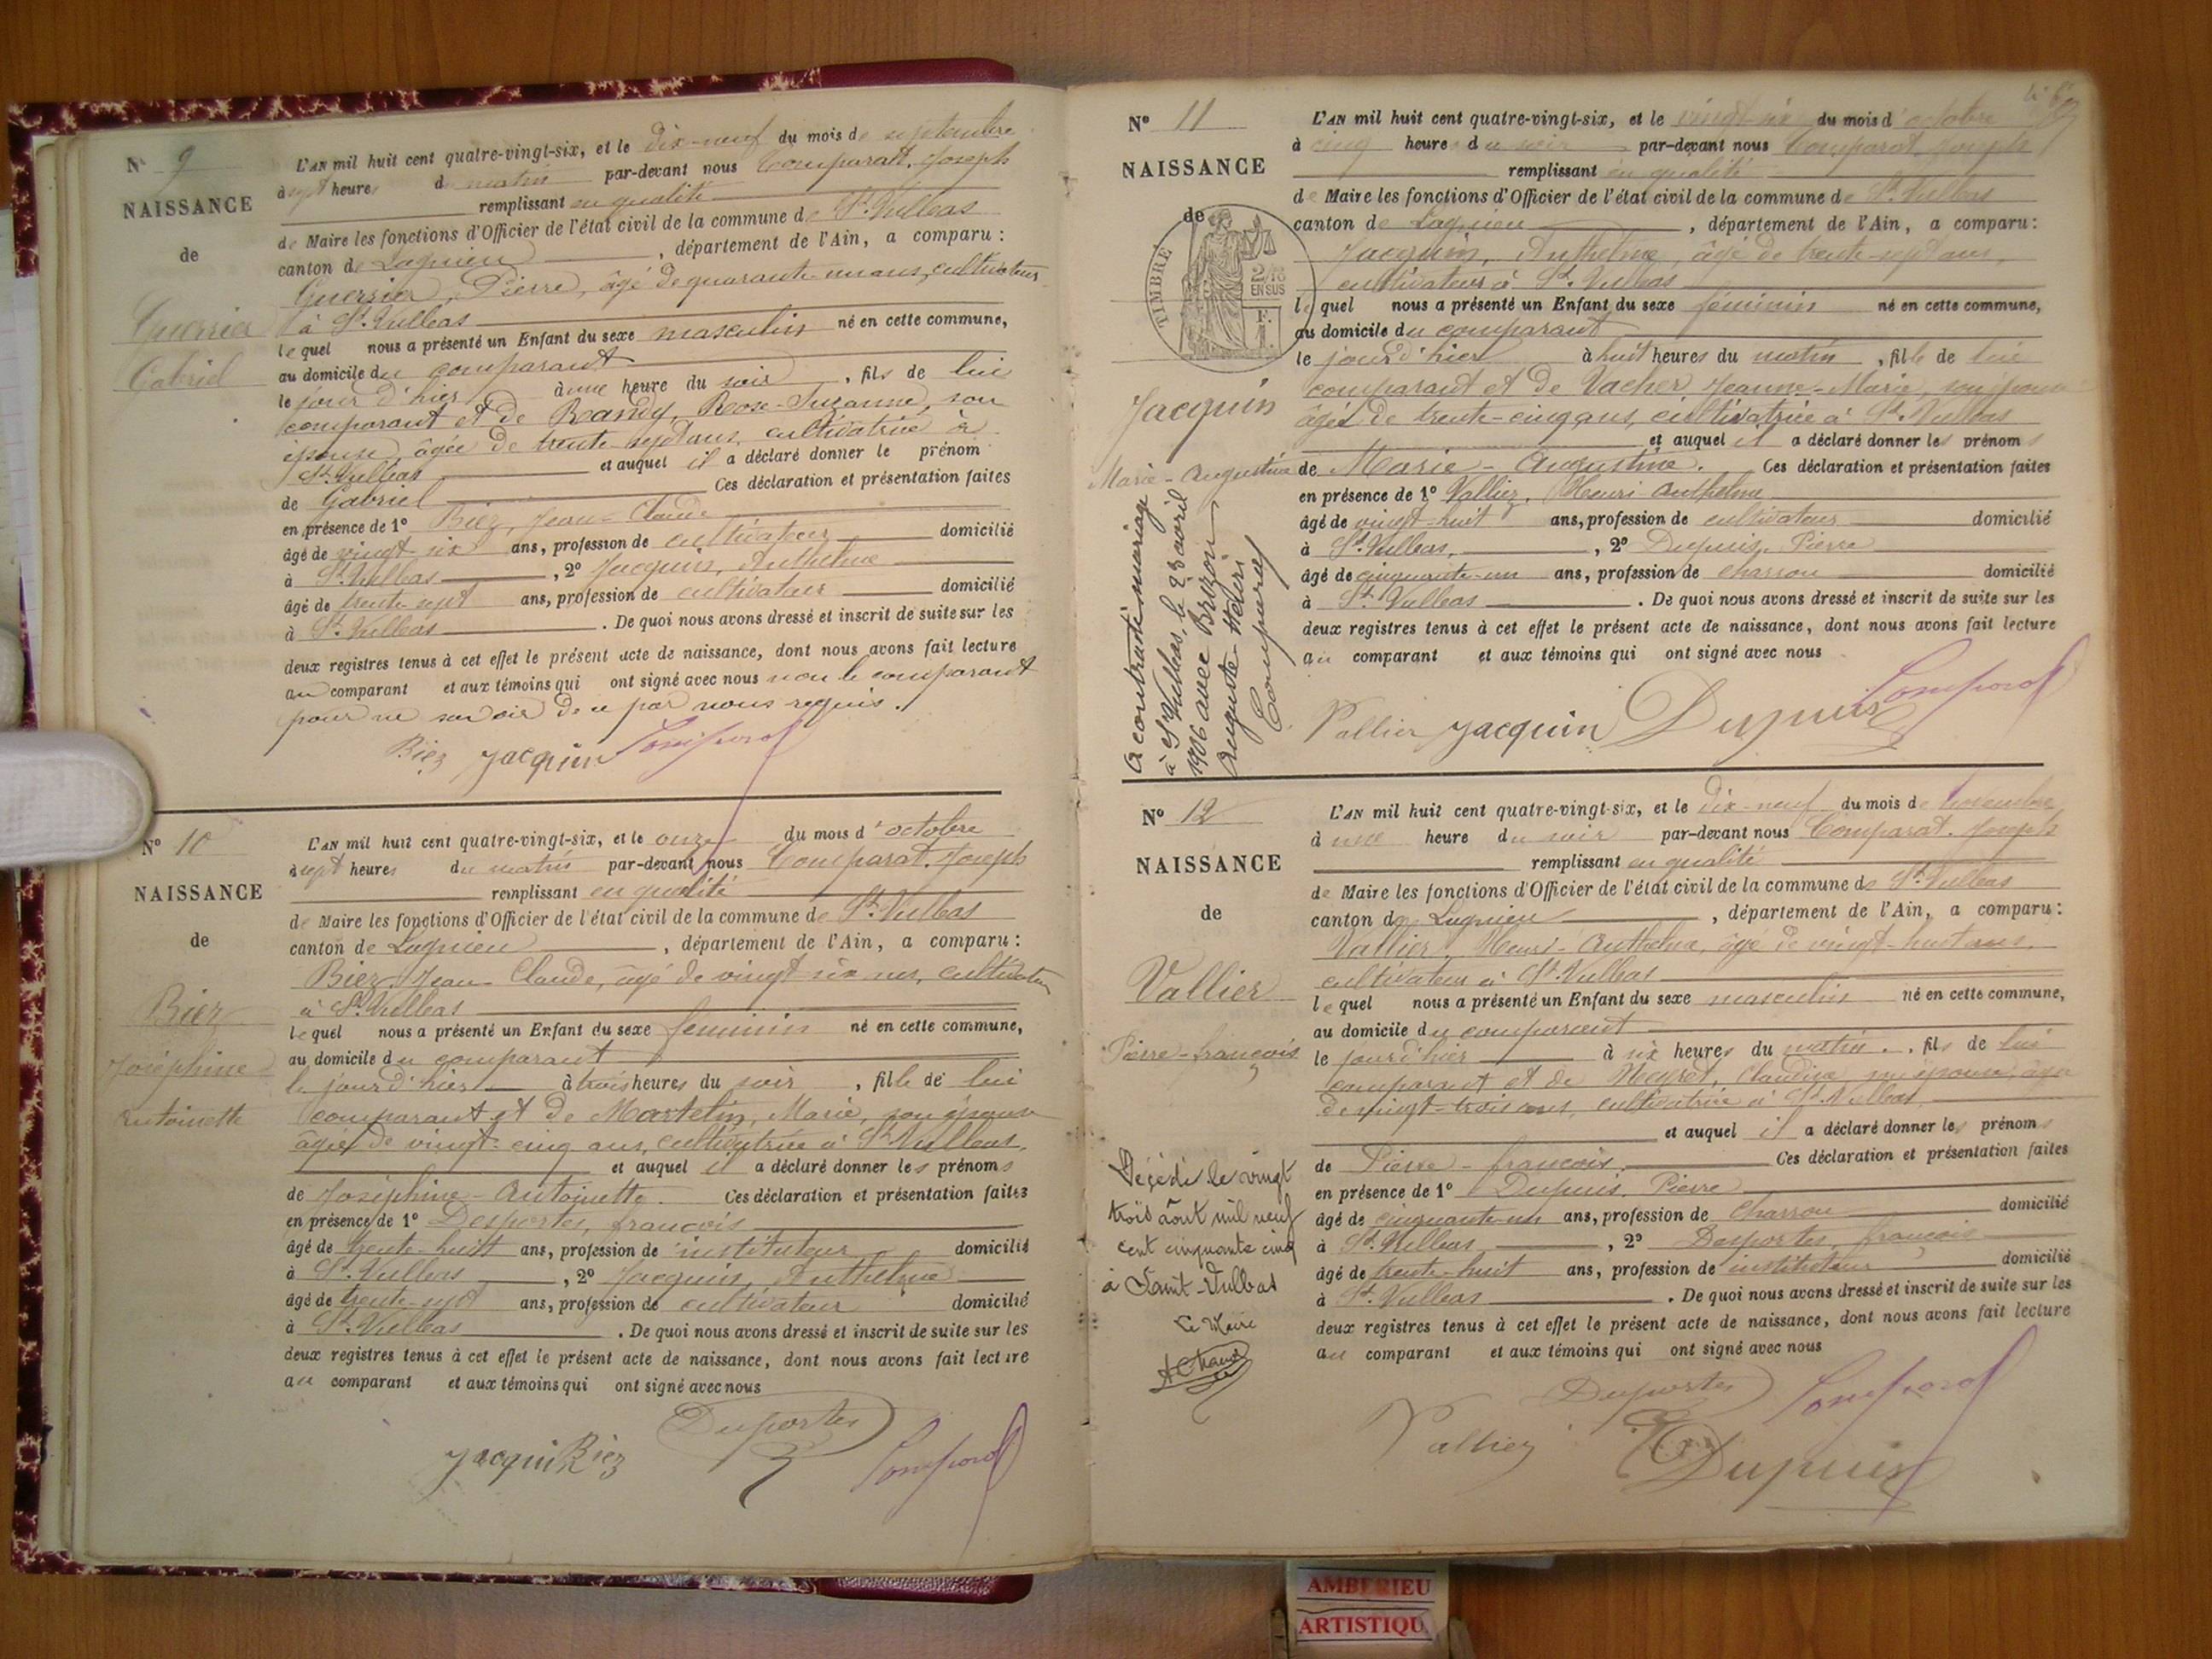 Nº 9
NAISSANCE
de
Guerrier
Gabriel
L'AN mil huit cent quatre-vingt-six, et le dix-neuf du mois de septembre
à sept heures du matin par-devant nous Comparat, Joseph
remplissant en qualité
de Maire les fonctions d'Officier de l'état civil de la commune de St. Vulbas
canton de Lagnieu, département de l'Ain, a comparu :
Guerrier, Pierre, âgé de quarante-un ans, cultivateur
à St. Vulbas
lequel nous a présenté un Enfant du sexe masculin né en cette commune,
au domicile du comparant
le jour d'hier à une heure du soir, fils de lui
comparant et de Bandy, Rose-Suzanne, son
épouse, âgée de trente-sept ans, cultivatrice à
St. Vulbas et auquel il a déclaré donner le prénom
de Gabriel Ces déclaration et présentation faites
en présence de 1º Biez, Jean-Claude
âgé de vingt-six ans, profession de cultivateur domicilié
à St. Vulbas, 2º Jacquin, Anthelme
âgé de trente-sept ans, profession de cultivateur domicilié
à St. Vulbas. De quoi nous avons dressé et inscrit de suite sur les
deux registres tenus à cet effet le présent acte de naissance, dont nous avons fait lecture
au comparant et aux témoins qui ont signé avec nous non le comparant
pour ne savoir de ce par nous requis.
Biez Jacquin Comparat
Nº 10
NAISSANCE
de
Biez
Joséphine
Antoinette
L'AN mil huit cent quatre-vingt-six, et le onze du mois d'octobre
à sept heures du matin par-devant nous Comparat, Joseph
remplissant en qualité
de Maire les fonctions d'Officier de l'état civil de la commune de St. Vulbas
canton de Lagnieu, département de l'Ain, a comparu :
Biez, Jean-Claude, âgé de vingt-six ans, cultivateur
à St. Vulbas
lequel nous a présenté un Enfant du sexe féminin né en cette commune,
au domicile du comparant
le jour d'hier à trois heures du soir, fille de lui
comparant et de Martelin, Marie, son épouse
âgée de vingt-cinq ans, cultivatrice à St. Vulbas,
et auquel il a déclaré donner les prénoms
de Joséphine-Antoinette. Ces déclaration et présentation faites
en présence de 1º Desportes, françois
âgé de trente-huit ans, profession de instituteur domicilié
à St. Vulbas, 2º Jacquin, Anthelme
âgé de trente-sept ans, profession de cultivateur domicilié
à St. Vulbas. De quoi nous avons dressé et inscrit de suite sur les
deux registres tenus à cet effet le présent acte de naissance, dont nous avons fait lecture
au comparant et aux témoins qui ont signé avec nous
Desportes
Jacquin Biez Comparat
Nº 11
NAISSANCE
de
TIMBRE
2/10
EN SUS
F.
1
Jacquin
Marie-Augustine
A contracté mariage
à St Vulbas, le 23 avril
1906 avec Brizon
Auguste-Henri
Comparat
L'AN mil huit cent quatre-vingt-six, et le vingt-six du mois d'octobre
à cinq heures du soir par-devant nous Comparat, Joseph
remplissant en qualité
de Maire les fonctions d'Officier de l'état civil de la commune de St. Vulbas
canton de Lagnieu, département de l'Ain, a comparu :
Jacquin, Anthelme, âgé de trente-sept ans,
cultivateur à St. Vulbas
lequel nous a présenté un Enfant du sexe féminin né en cette commune,
au domicile du comparant
le jour d'hier à huit heures du matin, fille de lui
comparant et de Vacher Jeanne-Marie, son épouse
âgée de trente-cinq ans, cultivatrice à St. Vulbas
et auquel il a déclaré donner les prénoms
de Marie-Augustine. Ces déclaration et présentation faites
en présence de 1º Vallier, Henri-Anthelme
âgé de vingt-huit ans, profession de cultivateur domicilié
à St. Vulbas, 2º Dupuis, Pierre
âgé de cinquante-un ans, profession de charron domicilié
à St. Vulbas. De quoi nous avons dressé et inscrit de suite sur les
deux registres tenus à cet effet le présent acte de naissance, dont nous avons fait lecture
au comparant et aux témoins qui ont signé avec nous
Vallier Jacquin Dupuis Comparat
Nº 12
NAISSANCE
de
Vallier
Pierre-françois
Décédé le vingt
trois août mil neuf
cent cinquante cinq
à Saint-Vulbas
Le Maire
L'AN mil huit cent quatre-vingt-six, et le dix-neuf du mois de novembre
à une heure du soir par-devant nous Comparat, Joseph
remplissant en qualité
de Maire les fonctions d'Officier de l'état civil de la commune de St. Vulbas
canton de Lagnieu, département de l'Ain, a comparu :
Vallier, Henri-Anthelme, âgé de vingt-huit ans,
cultivateur à St. Vulbas
lequel nous a présenté un Enfant du sexe masculin né en cette commune,
au domicile du comparant
le jour d'hier à six heures du matin, fils de lui
comparant et de Claudine son épouse, âgée
de vingt-trois ans, cultivatrice à St. Vulbas
et auquel il a déclaré donner les prénoms
de Pierre-françois. Ces déclaration et présentation faites
en présence de 1º Dupuis, Pierre
âgé de cinquante-un ans, profession de charron domicilié
à St. Vulbas, 2º Desportes, françois
âgé de trente-huit ans, profession de instituteur domicilié
à St. Vulbas. De quoi nous avons dressé et inscrit de suite sur les
deux registres tenus à cet effet le présent acte de naissance, dont nous avons fait lecture
au comparant et aux témoins qui ont signé avec nous
Desportes Comparat
Vallier Dupuis
AMBERIEU
ARTISTIQU